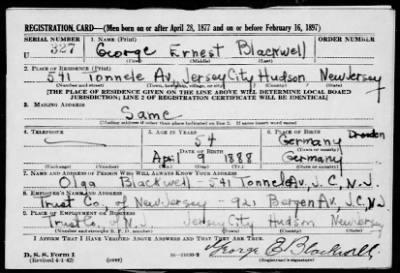 REGISTRATION CARD—(Men born on or after April 28, 1877 and on or before February 16, 1897)
SERIAL NUMBER 1. NAME (Print) ORDER NUMBER
U 327 George Ernest Blackwell
(First) (Middle) (Last)
2. PLACE OF RESIDENCE (Print)
541 Tonnele Av, Jersey City Hudson New Jersey
(Number and street) (Town, township, village, or city) (County) (State)
[THE PLACE OF RESIDENCE GIVEN ON THE LINE ABOVE WILL DETERMINE LOCAL BOARD
JURISDICTION; LINE 2 OF REGISTRATION CERTIFICATE WILL BE IDENTICAL]
3. MAILING ADDRESS
Same
(Mailing address if other than place indicated on line 2. If same insert word same)
4. TELEPHONE 5. AGE IN YEARS 6. PLACE OF BIRTH
54 Germany Dresden
DATE OF BIRTH (Town or county)
April 9 1888 Germany
(Exchange) (Number) (Mo.) (Day) (Yr.) (State or country)
7. NAME AND ADDRESS OF PERSON WHO WILL ALWAYS KNOW YOUR ADDRESS
Olga Blackwell - 541 Tonnele Av, J.C, N.J.
8. EMPLOYER'S NAME AND ADDRESS
Trust Co, of New Jersey - 921 Bergen Av, J.C, N.J.
9. PLACE OF EMPLOYMENT OR BUSINESS
Trust Co, N.J. Jersey City Hudson New Jersey
(Number and street or R. F. D. number) (Town) (County) (State)
I AFFIRM THAT I HAVE VERIFIED ABOVE ANSWERS AND THAT THEY ARE TRUE.
D. S. S. Form 1
(Revised 4-1-42) (over) George E Blackwell
(Registrant's signature)